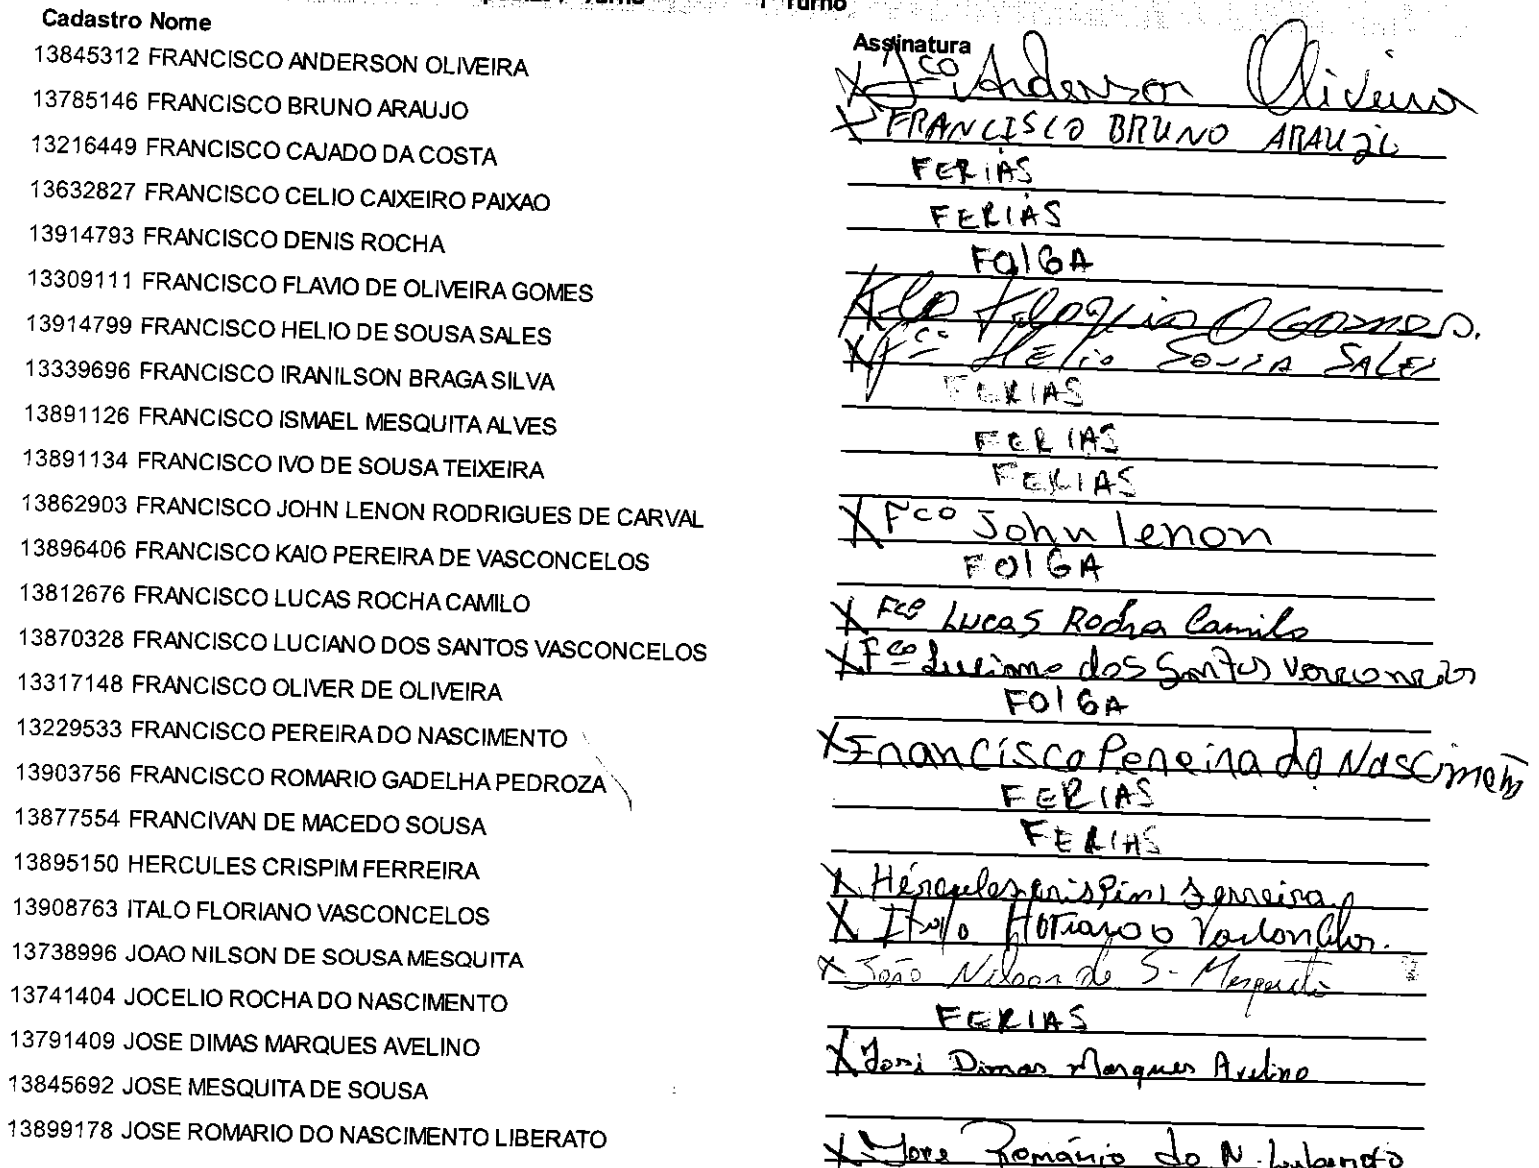 Turno Turno
Cadastro Nome Assinatura
13845312 FRANCISCO ANDERSON OLIVEIRA X Fco Anderson Oliveira
13785146 FRANCISCO BRUNO ARAUJO X FRANCISCO BRUNO ARAUJO
13216449 FRANCISCO CAJADO DA COSTA FERIAS
13632827 FRANCISCO CELIO CAIXEIRO PAIXAO FERIAS
13914793 FRANCISCO DENIS ROCHA FOlGA
13309111 FRANCISCO FLAVIO DE OLIVEIRA GOMES X O Gomes.
13914799 FRANCISCO HELIO DE SOUSA SALES X Fco HELio SOUSA SALES
13339696 FRANCISCO IRANILSON BRAGA SILVA FERIAS
13891126 FRANCISCO ISMAEL MESQUITA ALVES FERIAS
13891134 FRANCISCO IVO DE SOUSA TEIXEIRA FERIAS
13862903 FRANCISCO JOHN LENON RODRIGUES DE CARVAL X Fco John lenon
13896406 FRANCISCO KAIO PEREIRA DE VASCONCELOS FOlGA
13812676 FRANCISCO LUCAS ROCHA CAMILO X Fco Lucas Rocha Camilo
13870328 FRANCISCO LUCIANO DOS SANTOS VASCONCELOS X Fco Luciano dos Santos Vasconcelos
13317148 FRANCISCO OLIVER DE OLIVEIRA FOlGA
13229533 FRANCISCO PEREIRA DO NASCIMENTO X Francisco Pereira do Nascimento
13903756 FRANCISCO ROMARIO GADELHA PEDROZA FERIAS
13877554 FRANCIVAN DE MACEDO SOUSA FERIAS
13895150 HERCULES CRISPIM FERREIRA X Hércules crispim Ferreira
13908763 ITALO FLORIANO VASCONCELOS X Italo Floriano Vasconcelos.
13738996 JOAO NILSON DE SOUSA MESQUITA X João Nilson de S. Mesquita
13741404 JOCELIO ROCHA DO NASCIMENTO FERIAS
13791409 JOSE DIMAS MARQUES AVELINO X José Dimas Marques Avelino
13845692 JOSE MESQUITA DE SOUSA
13899178 JOSE ROMARIO DO NASCIMENTO LIBERATO X Jose Românio do N. Liberato